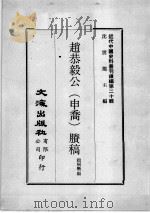 近代中國史料叢刊續編第二十輯
沈雲龍主編
趙恭毅公(申喬)賸稿
文海出版社有限公司印行